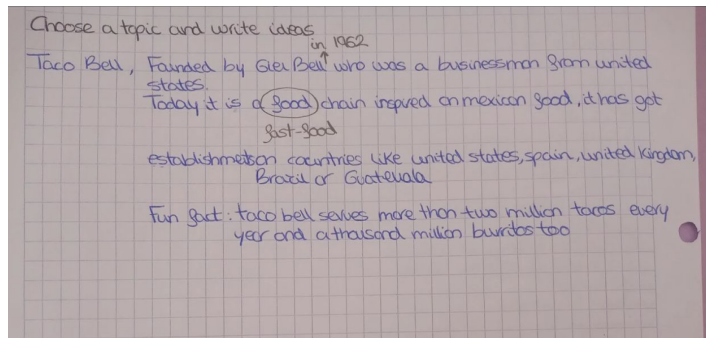 Choose a topic and write ideas
in 1962
Taco Bell, Founded by Glen Bell who was a businessman from united
states.
Today it is a food chain inspired on mexican food, it has got
fast-food
establishmets on countries like united states, spain, united Kingdom,
Brazil or Guatemala
Fun fact: taco bell serves more than two million tacos every
year and a thousand million burritos too